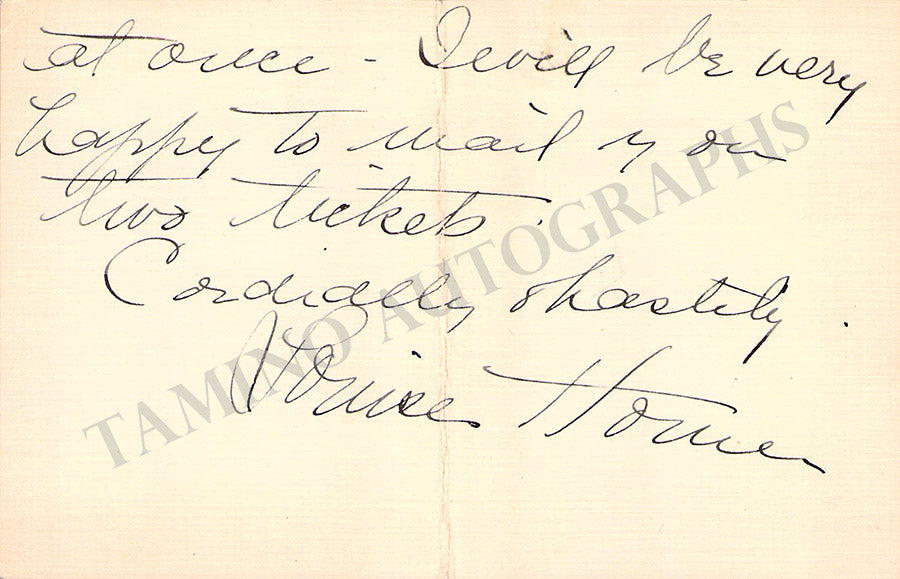 at once - I will be very
happy to mail you
two tickets.
Cordially & hastily.
Louise Homer
TAMINO AUTOGRAPHS